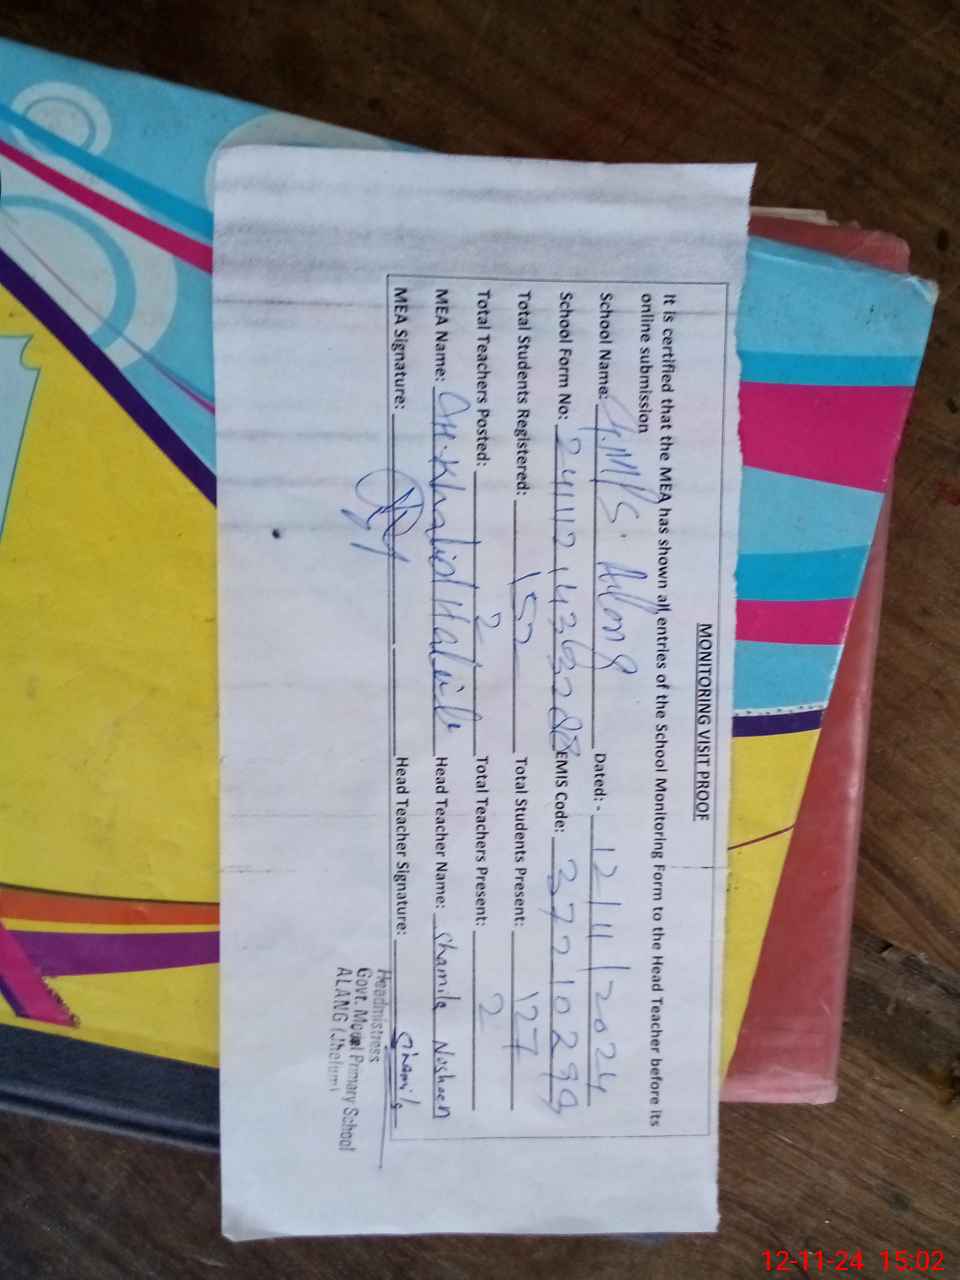 MONITORING VISIT PROOF
It is certified that the MEA has shown all entries of the School Monitoring Form to the Head Teacher before its
online submission
School Name: G.MPS. Alang Dated: - 12/11/2024
School Form No: EMIS Code: 37210299
Total Students Registered: 152 Total Students Present: 127
Total Teachers Posted: 2 Total Teachers Present: 2
MEA Name: CH. Khalid Habib Head Teacher Name: Shamila Nosheen
MEA Signature: Head Teacher Signature: Shamila
Headmistress
Govt. Model Primary School
ALANG (Jhelum)
12-11-24 15:02